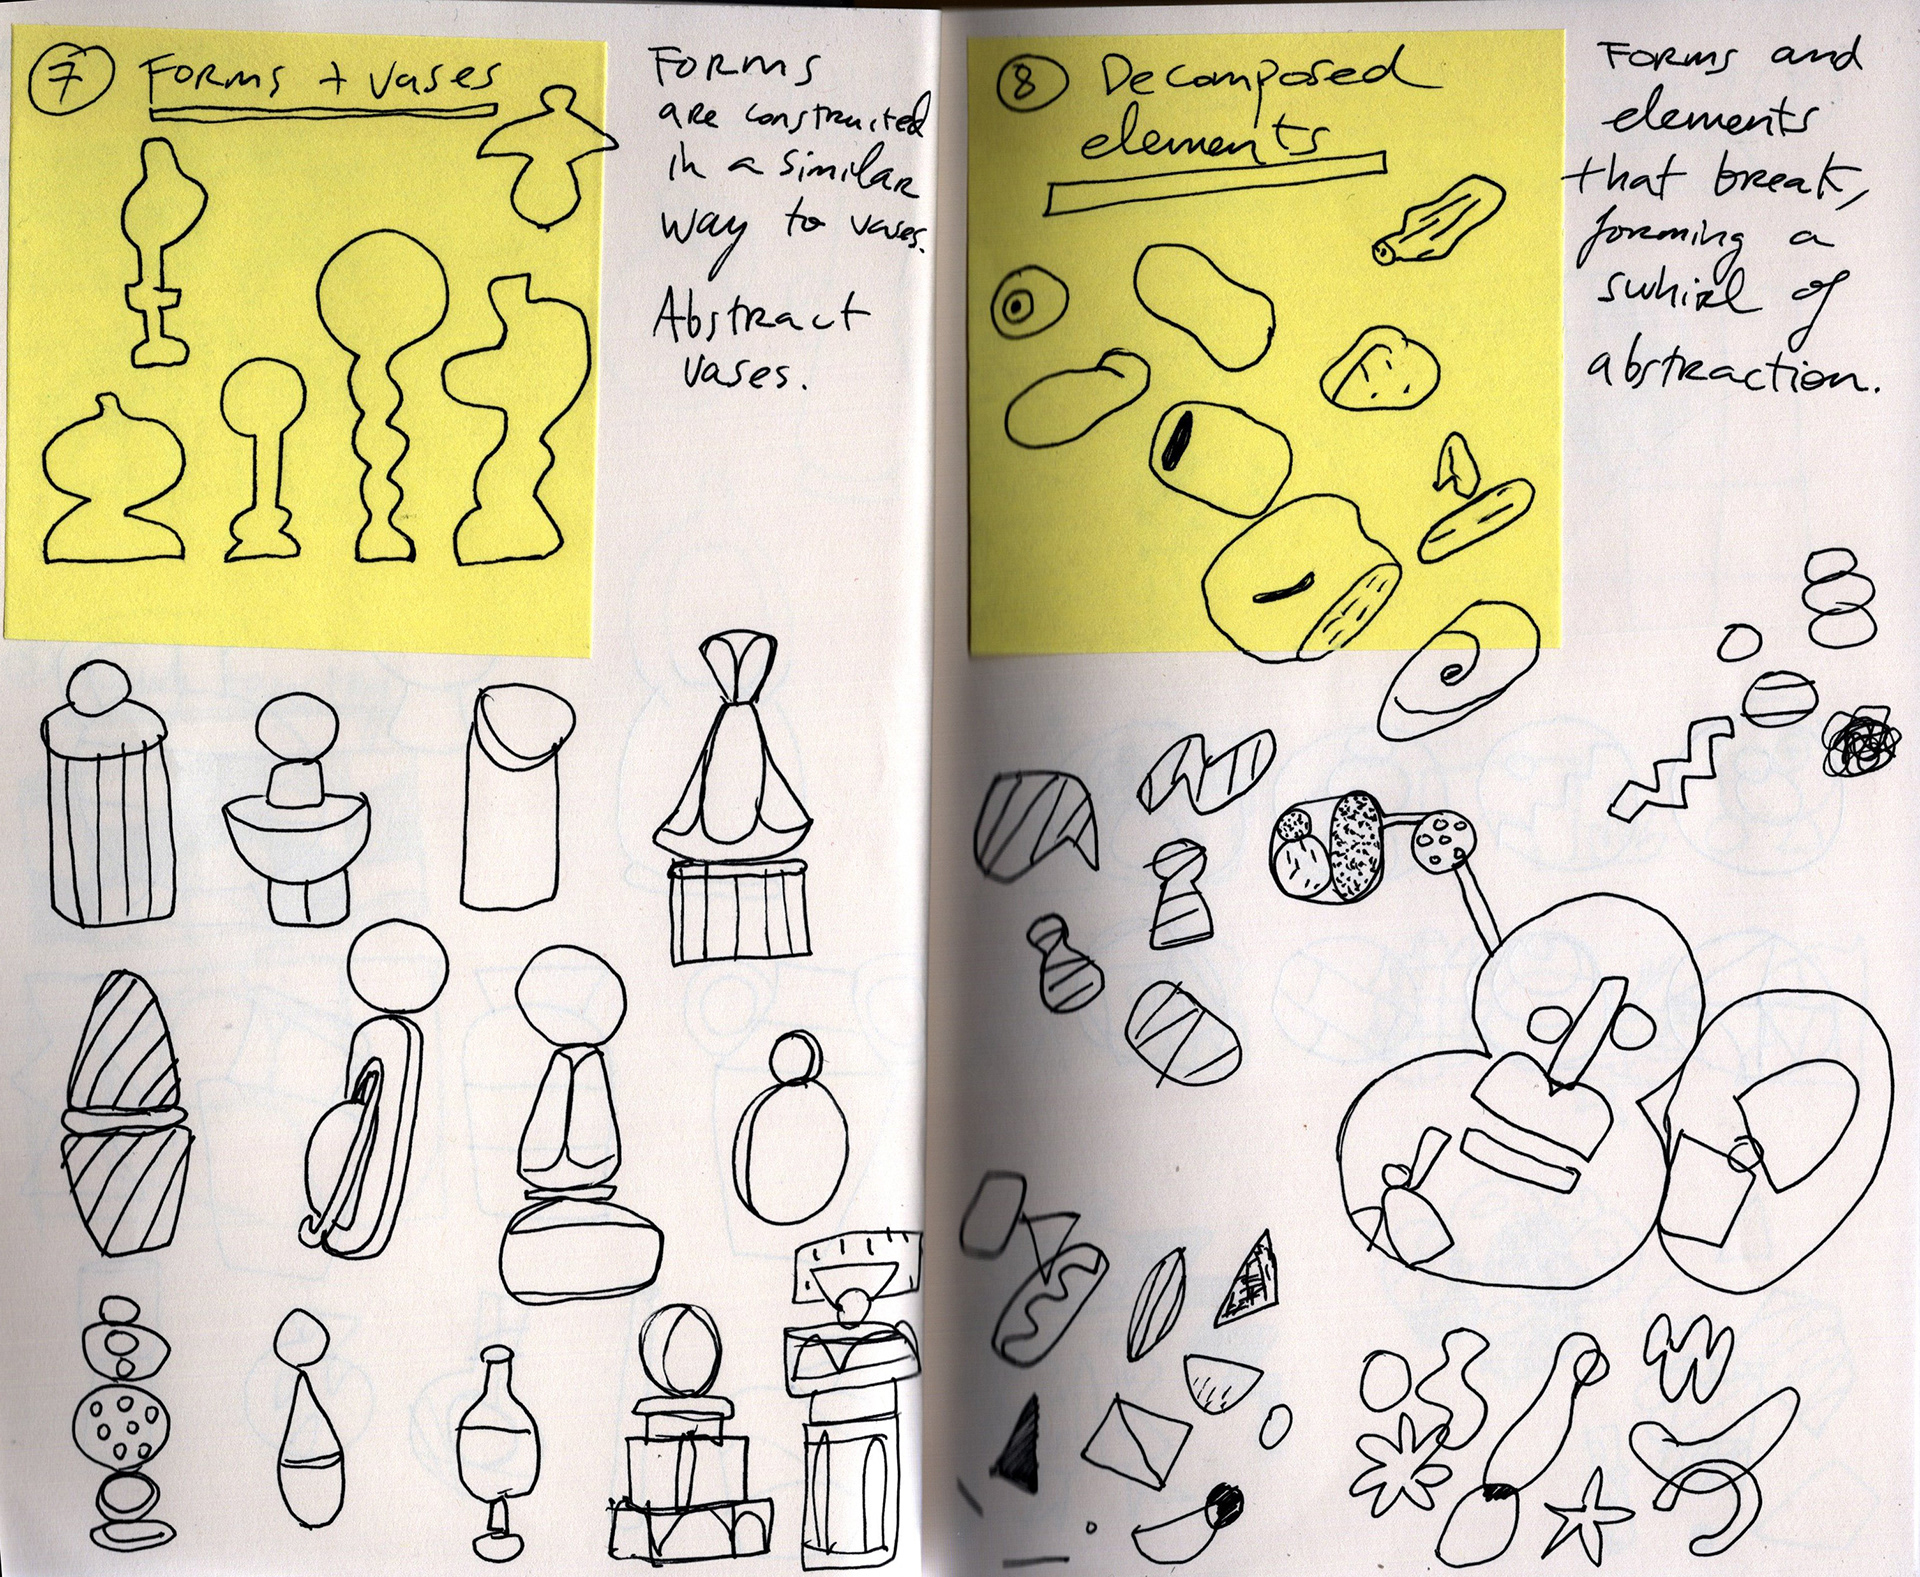 7 Forms + vases
Forms
are constructed
in a similar
way to vases.
Abstract
vases.
8 Decomposed
elements
Forms and
elements
that break,
forming a
swhirl of
abstraction.